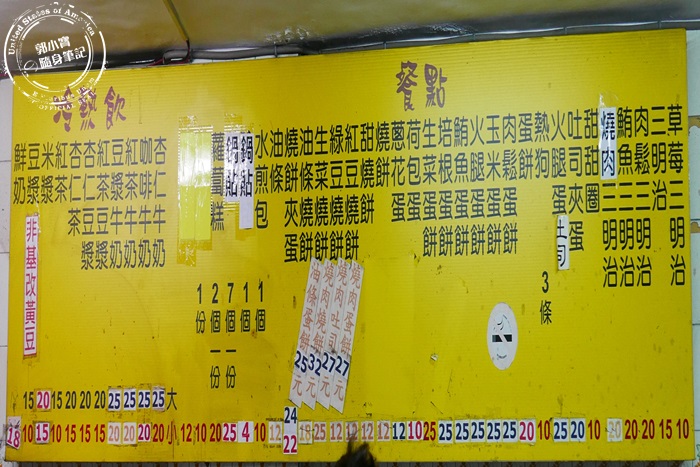 United States of America
郭小寶
隨身筆記
冷熱飲
鮮奶
豆漿
米漿
紅茶
杏仁茶
杏仁豆漿
紅茶豆漿
豆漿牛奶
紅茶牛奶
咖啡牛奶
杏仁牛奶
非基改黃豆
餐點
蘿蔔糕
鍋貼
鍋貼
水煎包
油條
燒餅夾蛋
油條燒餅
生菜燒餅
綠豆燒餅
紅豆燒餅
甜燒餅
燒餅
蔥花蛋
荷包蛋
生菜蛋餅
培根蛋餅
鮪魚蛋餅
火腿蛋餅
玉米蛋餅
肉鬆蛋餅
蛋餅
熱狗
3條
火腿蛋吐司
吐司夾蛋
甜甜圈
燒肉三明治
鮪魚三明治
肉鬆三明治
三明治
草莓三明治
1份
2個一份
7個一份
1個
1個
油條蛋餅25元
燒肉燒餅32元
燒肉吐司27元
燒肉蛋餅27元
15 20 15 20 20 20 25 25 25 25 大
24
18 10 15 10 15 15 15 20 20 20 20 小 12 10 20 25 4 10 12 22 19 25 12 12 12 12 12 10 25 25 25 25 25 20 10 25 20 10 20 20 20 15 10